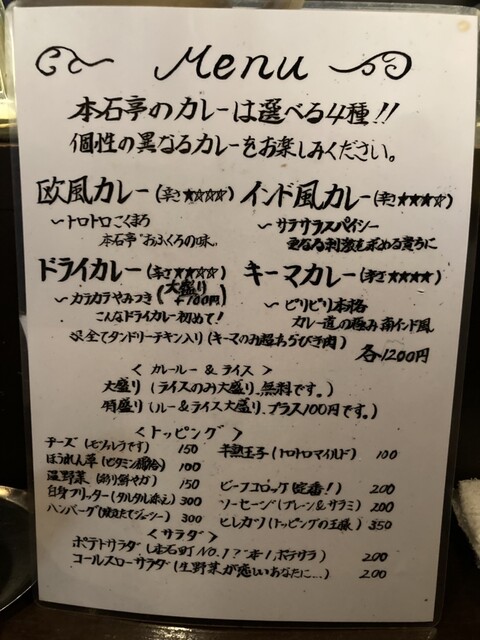 Menu
本石亭のカレーは選べる4種!!
個性の異なるカレーをお楽しみください。
欧風カレー(辛さ★☆☆☆☆) インド風カレー(辛さ★★★★☆)
〜トロトロこくまろ 〜サラサラスパイシー
本石亭"おふくろの味" 更なる刺激を求める貴方に
ドライカレー(辛さ★★★☆☆) キーマカレー(辛さ★★★★)
〜カラカラやみつき(大盛り+100円) 〜ピリピリ本格
こんなドライカレー初めて! カレー道の極み南インド風
※全てタンドリーチキン入り(キーマのみ超あらびき肉)
各1200円
<カレールー&ライス>
大盛り(ライスのみ大盛り、無料です。)
特盛り(ルー&ライス大盛り、プラス100円です。)
<トッピング>
チーズ(モツァレラです) 150 半熟玉子(トロトロマイルド) 100
ほうれん草(ビタミン補給) 100
温野菜(彩り鮮やか) 150 ビーフコロッケ(定番!) 200
白身フリッター(タルタル添え) 300 ソーセージ(プレーン&サラミ) 200
ハンバーグ(焼立てジューシー) 300 ヒレカツ(トッピングの王様) 350
<サラダ>
ポテトサラダ(本石町NO.1?本1ポテサラ) 200
コールスローサラダ(生野菜が恋しいあなたに…) 200